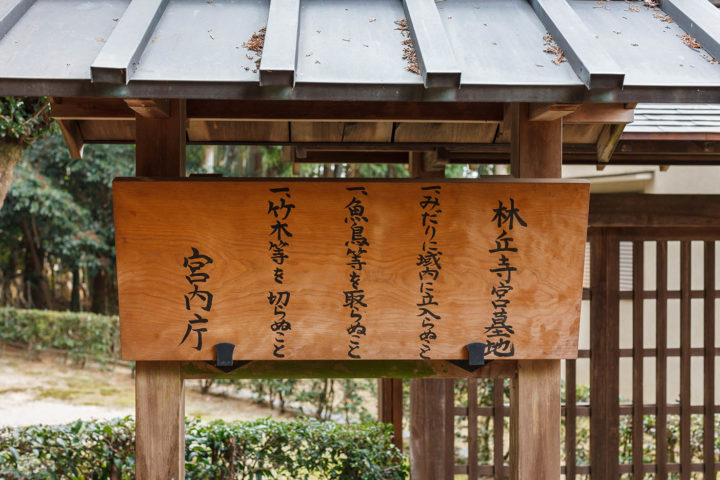 林丘寺宮墓地
一、みだりに域内に立入らぬこと
一、魚鳥等を取らぬこと
一、竹木等を切らぬこと
宮内庁